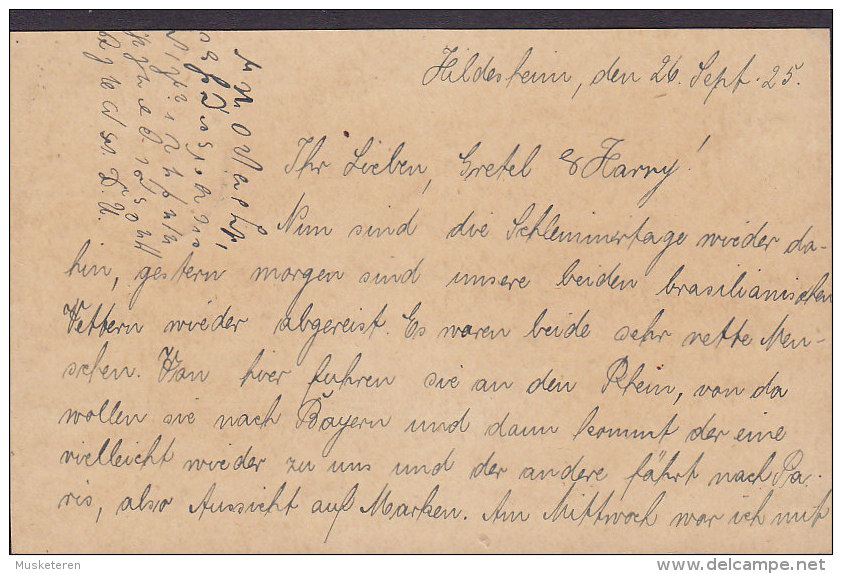 Hildesheim, den 26. Sept. 25.
Ihr Lieben, Gretel & Harry!
Nun sind die Schlemmertage wieder da-
hin, gestern morgen sind unsere beiden brasilianischen
Vettern wieder abgereist. Es waren beide sehr nette Men-
schen. Von hier fuhren sie an den Rhein, von da
wollen sie nach Bayern und dann kommt der eine
vielleicht wieder zu uns und der andere fährt nach Pa-
ris, also Aussicht auf Marken. Am Mittwoch war ich mit
Musketeren
delcampe.net